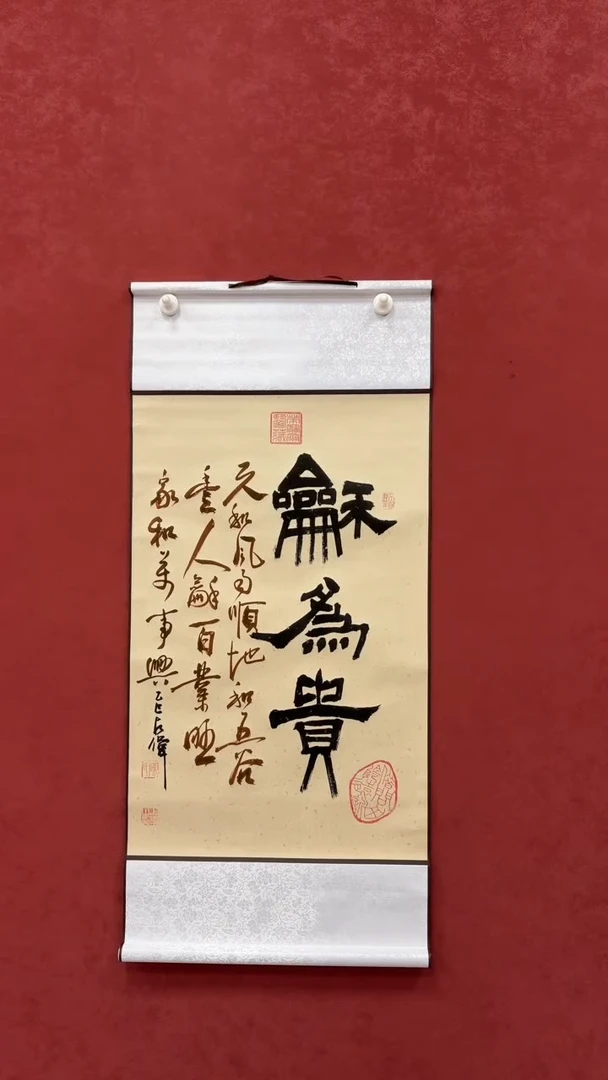 龢為貴
天和風雨順地和五谷
豐人龢百業旺
家和萬事興乙巳